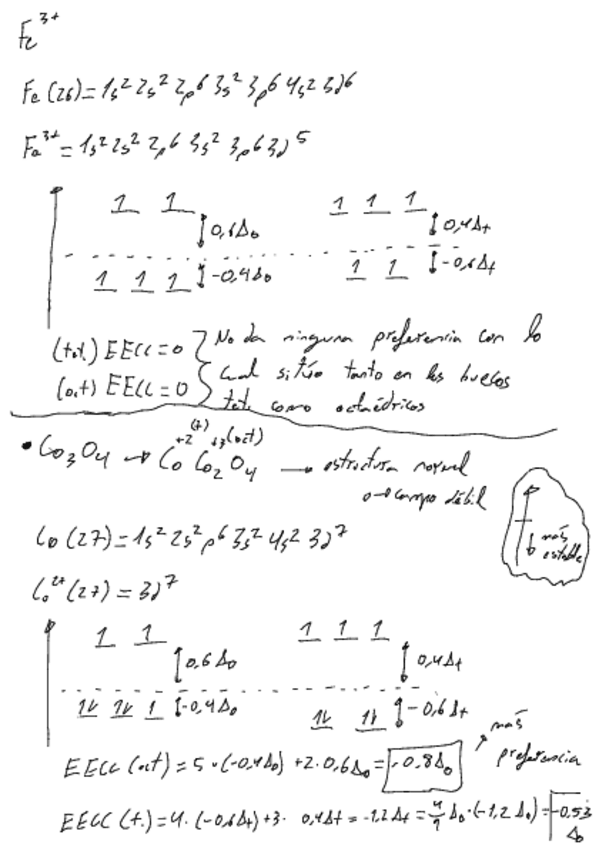 Fe³⁺
Fe (26) = 1s² 2s² 2p⁶ 3s² 3p⁶ 4s² 3d⁶
Fe³⁺ = 1s² 2s² 2p⁶ 3s² 3p⁶ 3d⁵
1 1 1 1 1
0,6Δo 0,4Δt
1 1 1 -0,4Δo 1 1 -0,6Δt
(tet.) EECC = 0 } No da ninguna preferencia con lo
(oct) EECC = 0 } cual sitúo tanto en los huecos
tet. como octaédricos
(t) (oct)
+2 +3
• Co₃O₄ → Co Co₂O₄ → estructura normal
o → campo débil
más
estable
Co (27) = 1s² 2s² p⁶ 3s² 4s² 3d⁷
Co²⁺ (27) = 3d⁷
1 1 1 1 1
0,6Δo 0,4Δt
1l 1l 1 -0,4Δo 1l 1l -0,6Δt
más
preferencia
EECC (oct) = 5·(-0,4Δo) + 2·0,6Δo = -0,8Δo
EECC (t.) = 4·(-0,6Δt) + 3· 0,4Δt = -1,2Δt = 4/9 Δo·(-1,2Δo) = -0,53 Δo